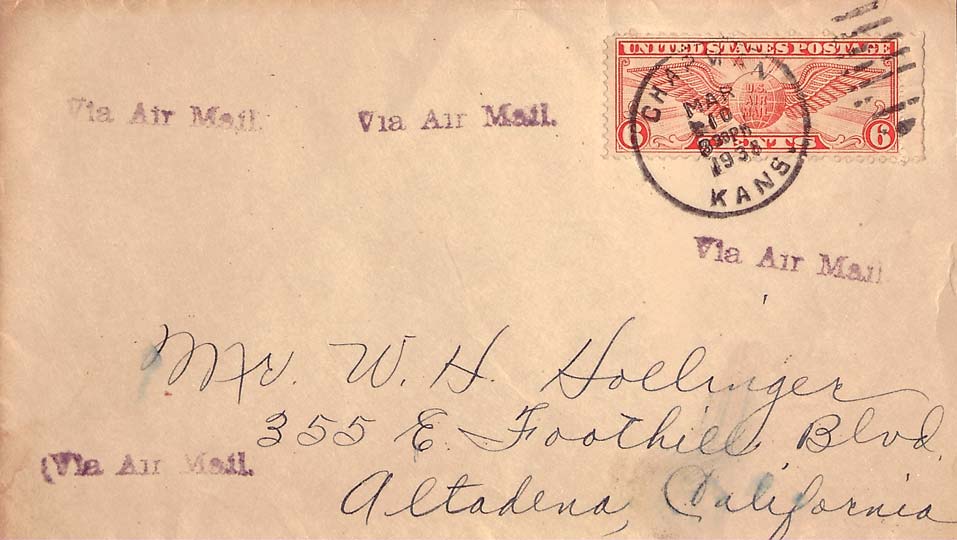 UNITED STATES POSTAGE
U.S.
AIR
MAIL
6 CENTS 6
CHAPMAN
MAR
10
30PM
1938
KANS.
Via Air Mail.
Via Air Mail.
Via Air Mail
Mr. W. H. Hollinger
355 E. Foothill Blvd.
(Via Air Mail.
Altadena, California